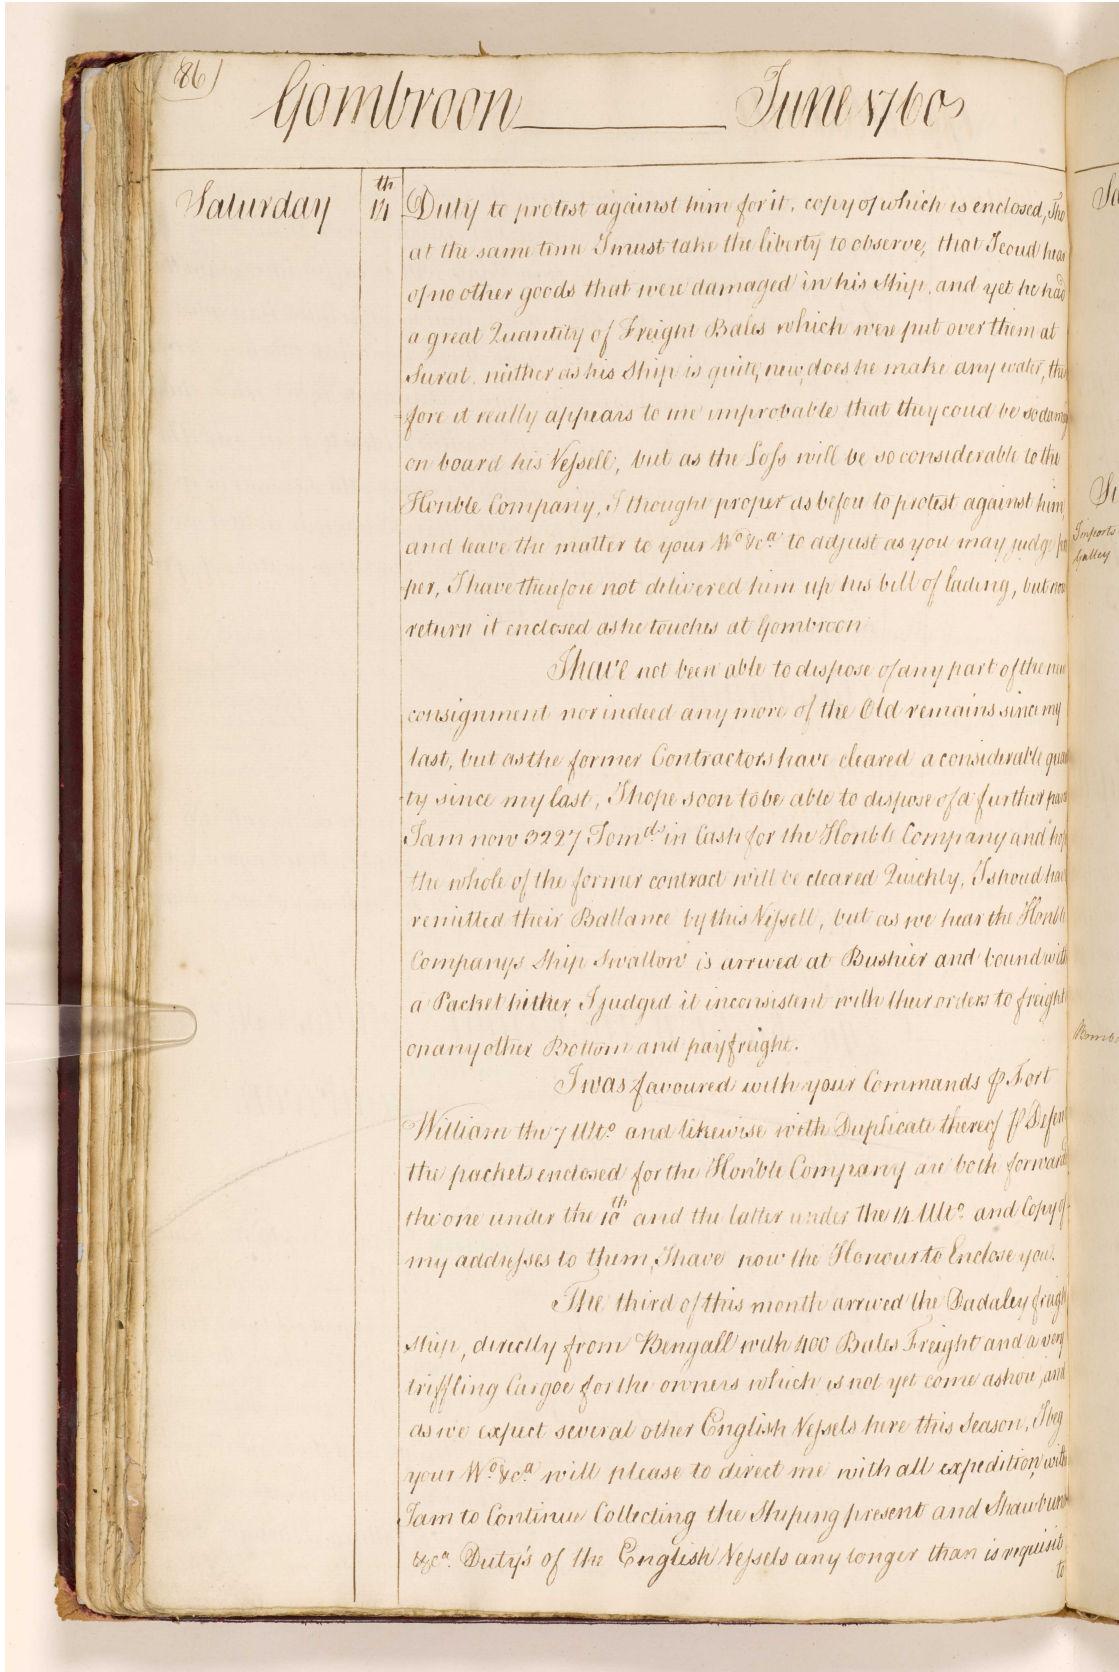 86)
Gombroon June 1760
Saturday 14th Duty to protest against him for it, copy of which is enclosed, Tho
at the same time I must take the liberty to observe, that I coud hear
of no other goods that were damaged in his Ship, and yet he had
a great Quantity of Freight Bales which were put over them at
Surat, neither as his Ship is quite new, does he make any water, the
fore it really appears to me improbable that they coud be so damag
on board his Vessell, but as the Loss will be so considerable to the
Honble Company, I thought proper as before to protest against him,
and leave the matter to your Wo. &ca. to adjust as you may judge pro
per, I have therefore not delivered him up his bill of lading, but now
return it enclosed as he touches at Gombroon
I have not been able to dispose of any part of the new
consignment nor indeed any more of the Old remains since my
last, but as the former Contractors have cleared a considerable quan
ty since my last, I hope soon to be able to dispose of a further part
I am now 3227 Tomds. in Cash for the Honble Company and hop
the whole of the former contract will be cleared Quickly, I shoud hav
remitted their Ballance by this Vessell, but as we hear the Honble
Companys Ship Swallow is arrived at Bushier and bound with
a Packet hither, I judged it inconsistent with their orders to freight
on any other Bottom and pay freight.
I was favoured with your Commands ⅌ Fort
William the 7 Ulto. and likewise with Duplicate thereof ⅌ Defen
the packets enclosed for the Honble Company are both forward
the one under the 10th and the latter under the 14 Ulto. and Copy of
my addresses to them, I have now the Honour to Enclose you.
The third of this month arrived the Dadaley freigh
Ship, directly from Bengall with 400 Bales Freight and a very
triffling Cargoe for the owners which is not yet come ashore, and
as we expect several other English Vessels here this Season, I beg
your Wo. &ca. will please to direct me with all expedition, with
I am to Continue Collecting the Shiping present and Shawbund
&ca. Duty's of the English Vessels any longer than is requisite
to
Imports
Galley